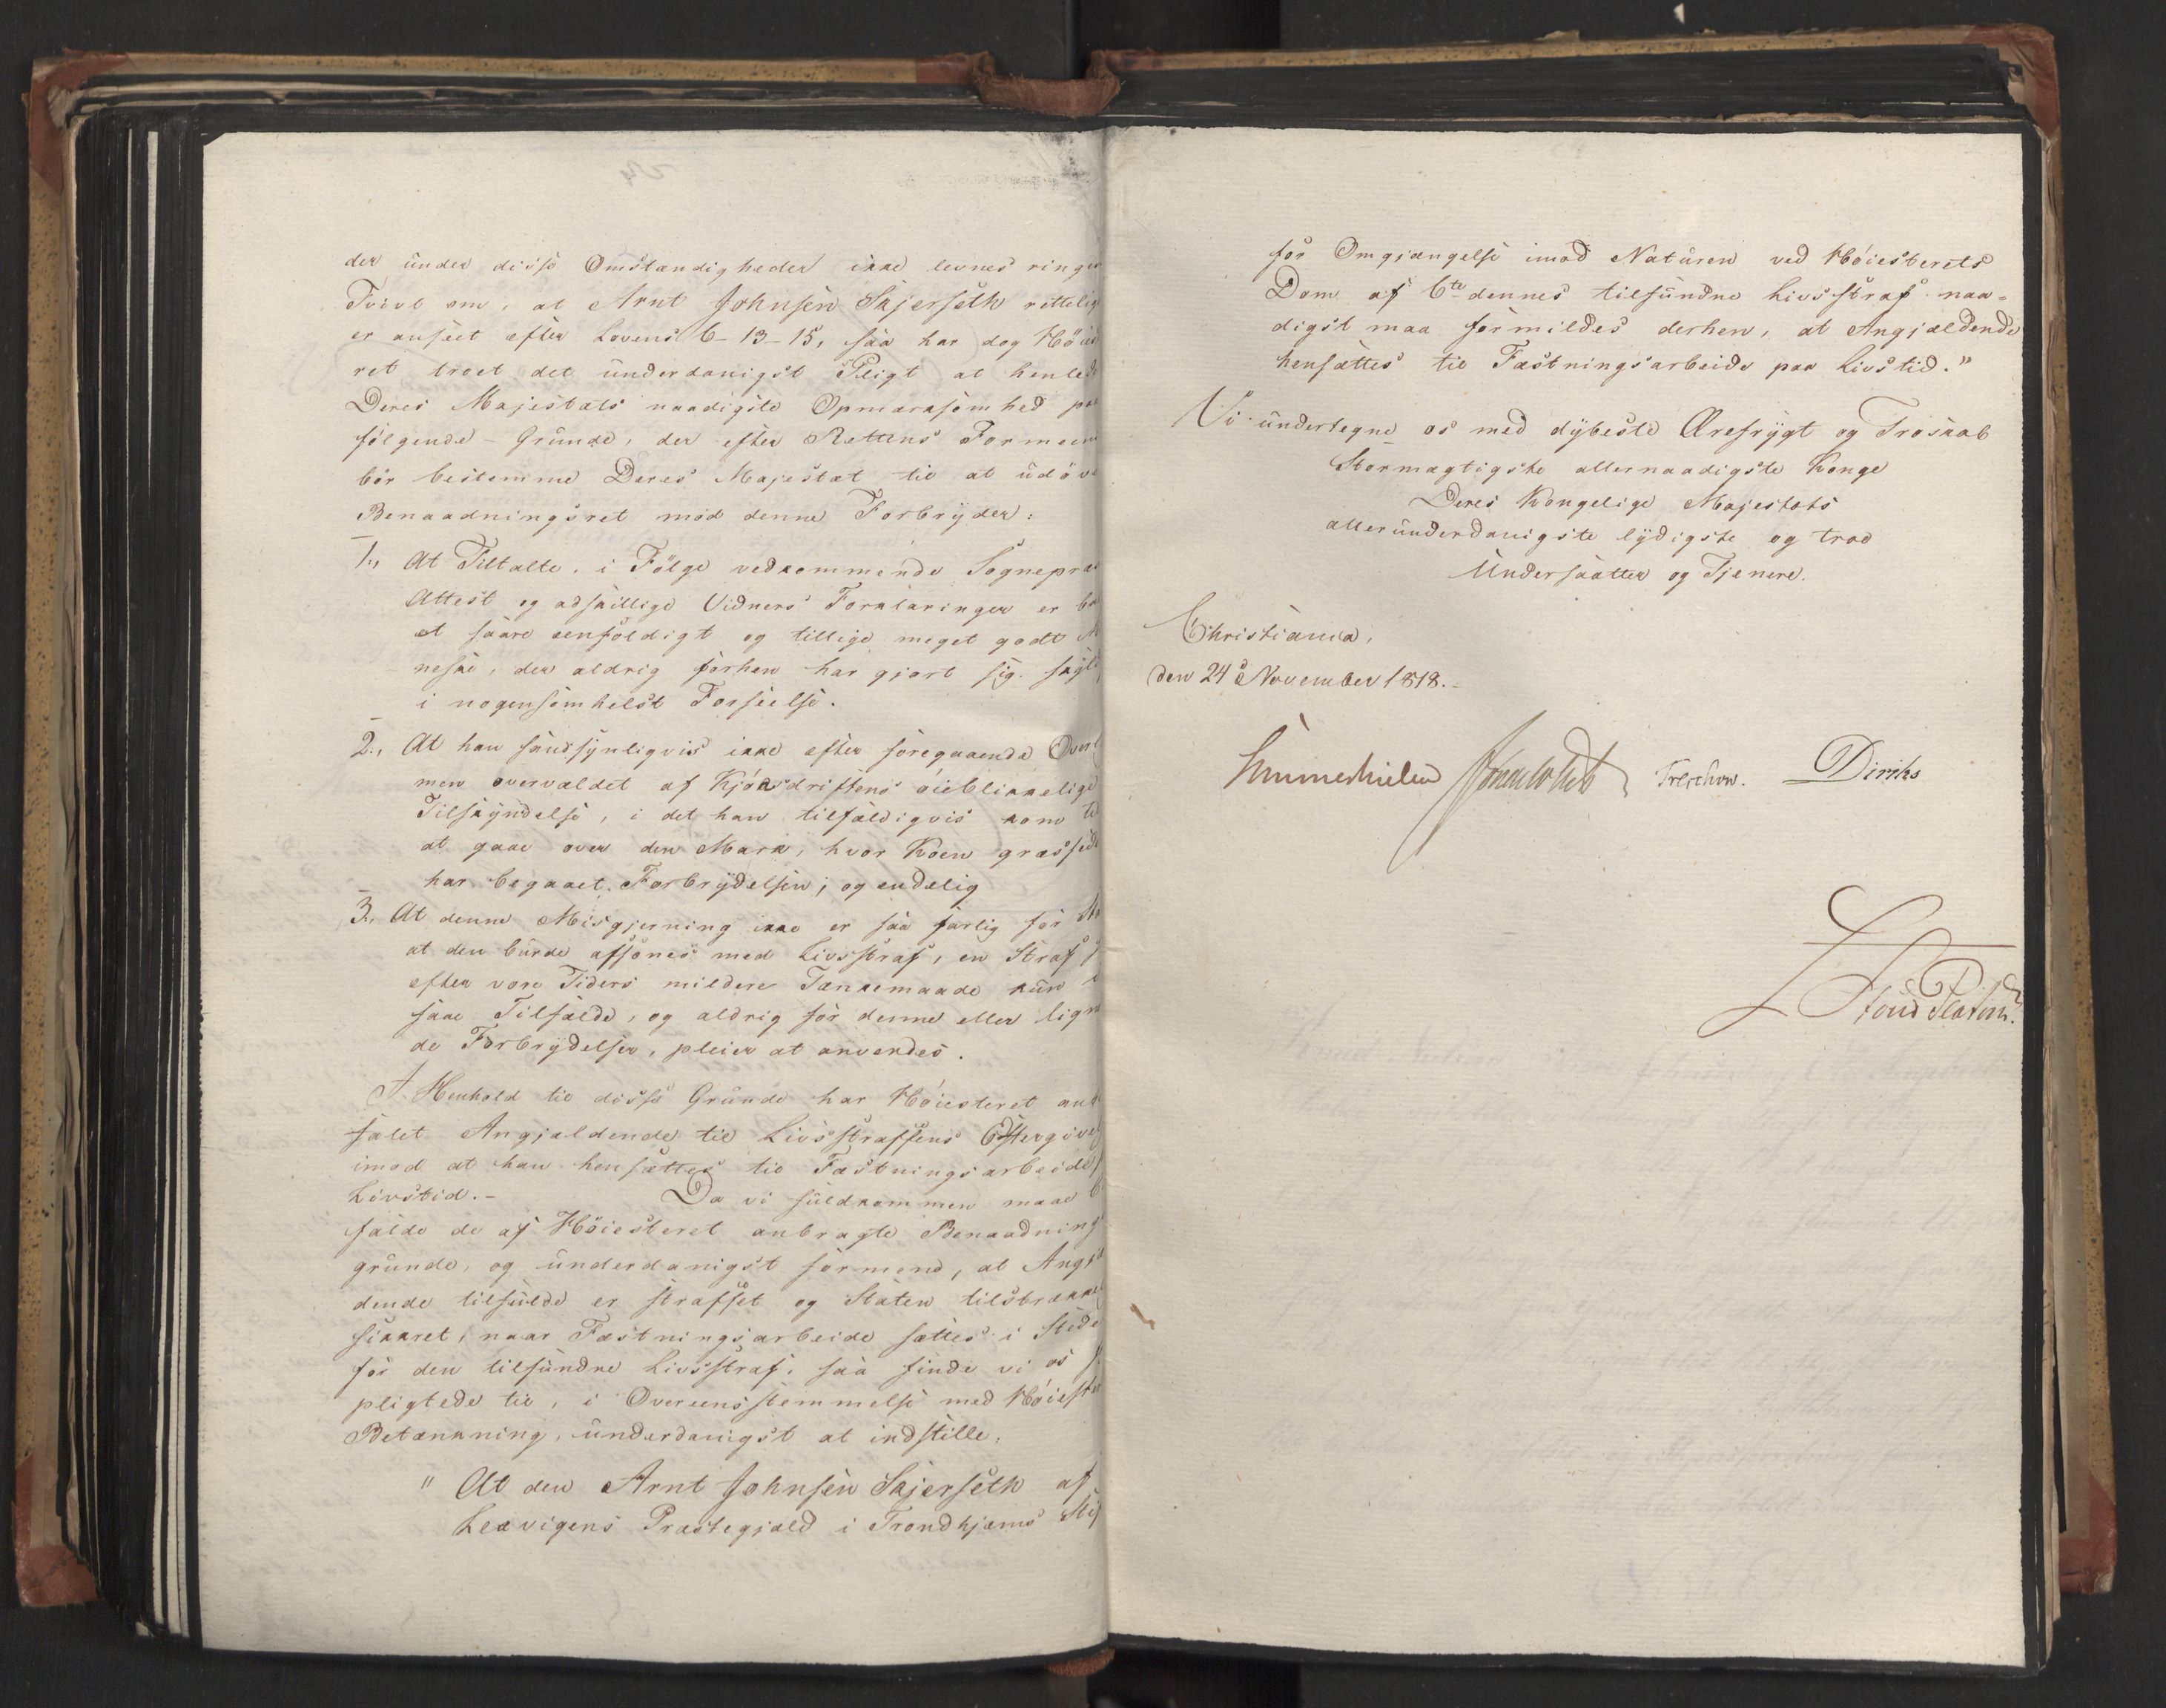 der under disse Omstændigheder ikke levnes ringes
Tvivl om, at Arnt Johnsen Skjerseth rettelig
er anseet efter Lovens 6-13-15, saa har dog Höies
ret troet det underdanigst Pligt at henlede
Deres Majestæts naadigste Opmærksomhed paa
fölgende Grunde, der efter Rettens Formeen
bör bestemme Deres Majestæt til at udöve
Benaadningsret mod denne Forbryder:
1., At Tiltalte, i Fölge vedkommende Sognepræ
Attest og adskillige Vidners Forklaringer er
et saare eenfoldigt og tillige meget godt M
neske, der aldrig forhen har gjort sig skyld
i nogensomhelst Forseelse.
2., At han sandsynligviis ikke efter foregaaende Overl
men overvældet af Kjönsdriftens öieblikkelige
Tilskyndelse, i det han tilfældigviis kom til
at gaae over den Mark, hvor Koen græssede
har begaaet Forbrydelsen; og endelig
3., At denne Misgjerning ikke er saa farlig for Sta
at den burde afsones med Livsstraf, en Straf s
efter vore Tiders mildere Tænkemaade kun i
faae Tilfælde, og aldrig for denne eller lign
de Forbrydelser, pleier at anvendes.
I Henhold til disse Grunde har Höiesteret anb
falet Angjældende til Livsstraffens Eftergivel
imod at han hensættes til Fæstningsarbeide
Livstid.- Da vi fuldkommen maae b
falde de af Höiesteret anbragte Benaadnings
grunde, og underdanigst formene, at Angjæ
dende tilfulde er straffet og Staten tilstrækkel
sikkret, naar Fæstningsarbeide sættes i Stede
for den tilfundne Livsstraf, saa finde vi os f
pligtede til, i Overeensstemmelse med Höieste
Betænkning, underdanigst at indstille:
" At den Arnt Johnsen Skjerseth af
Lexvigens Præstegjæld i Trondhjems Stif
for Omgjængelse imod Naturen ved Höiesterets
Dom af 6te dennes tilfundne Livsstraf naa-
digst maa formildes derhen, at Angjældende
hensættes til Fæstningsarbeide paa Livstid."
Vi undertegne os med dybeste Ærefrygt og Troskab
Stormægtigste allernaadigste Konge
Deres Kongelige Majestæts
allerunderdanigste lydigste og troe
Undersaatter og Tjenere.
Christiania,
den 24de November 1818.-
Sommerhielm Treschow. Diriks